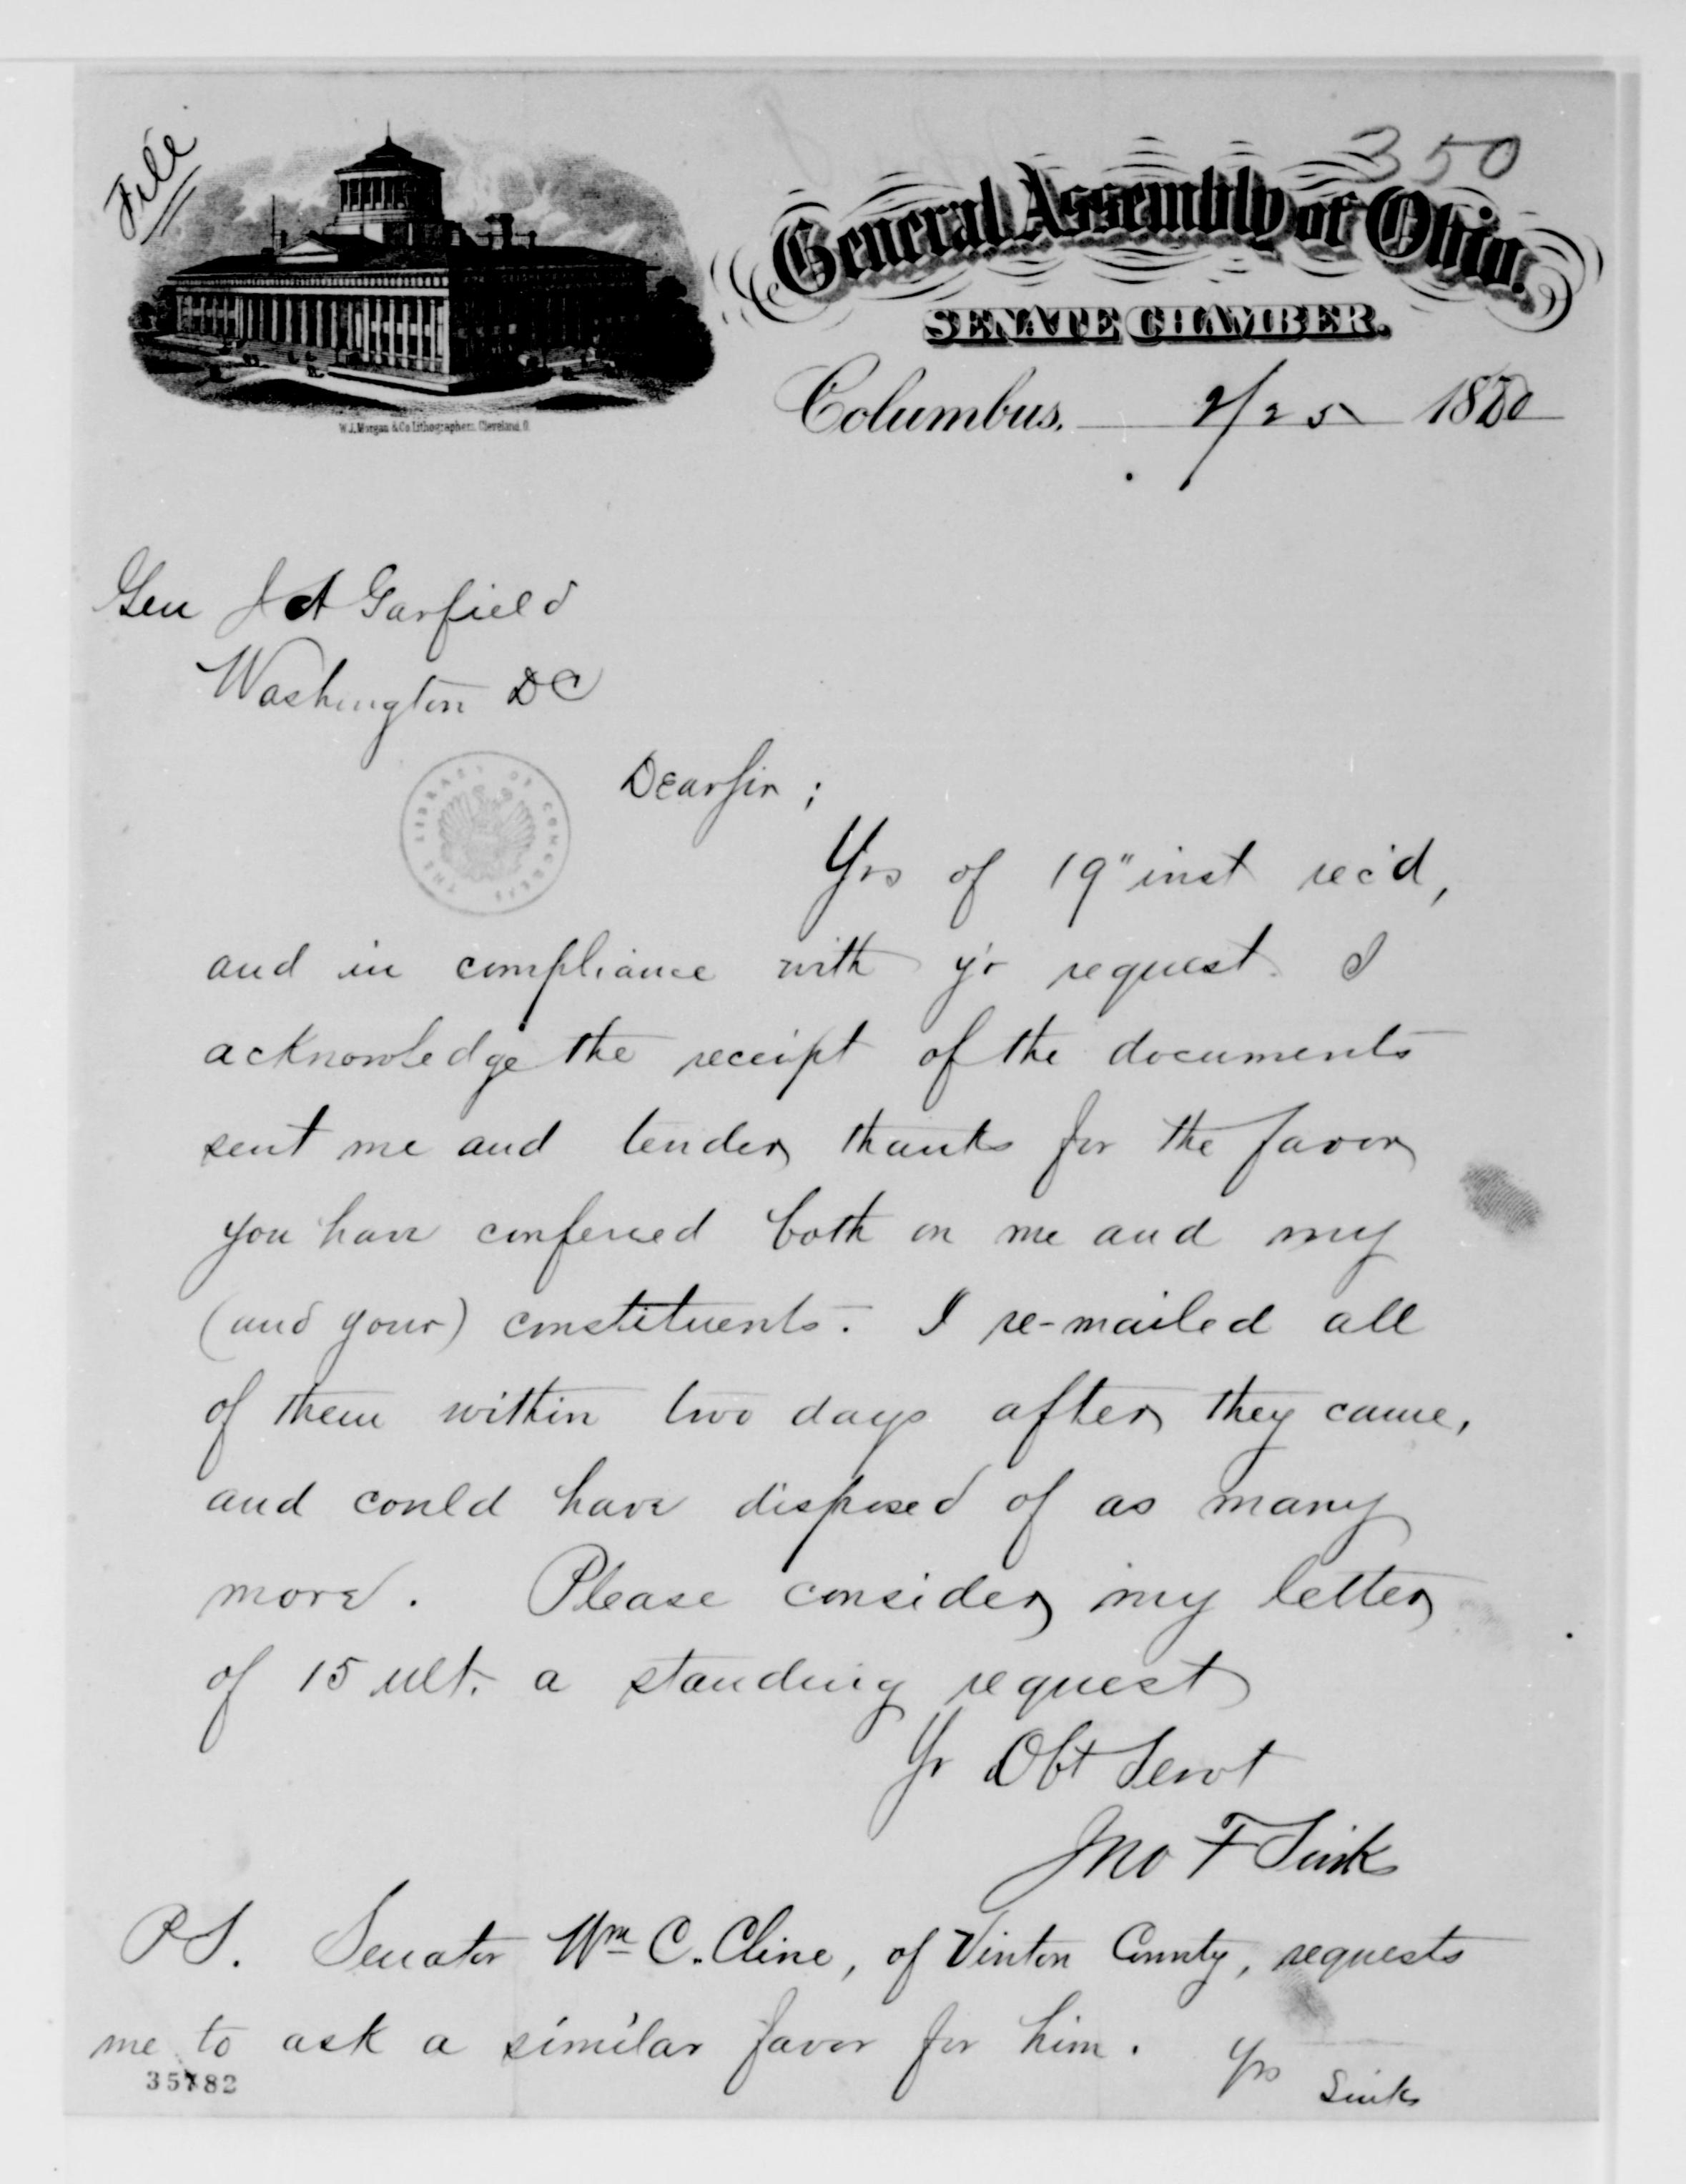 File
350
General Assembly of Ohio.
SENATE CHAMBER.
W.J. Morgan & Co Lithographers, Cleveland, O.
Columbus, 2/25 1880
Gen J A Garfield
Washington DC
THE LIBRARY OF CONGRESS
Dear Sir ;
Yrs of 19" inst rec'd,
and in compliance with y'r request I
acknowledge the receipt of the documents
sent me and tender thanks for the favor
you have conferred both on me and my
(and your) constituents. I re-mailed all
of them within two days after they came,
and could have disposed of as many
more. Please consider my letter
of 15 ult. a standing request
Yr Obt Servt
Jno F Sinks
P S. Senator Wm C. Cline, of Vinton County, requests
me to ask a similar favor for him. Yrs
Sinks
35782